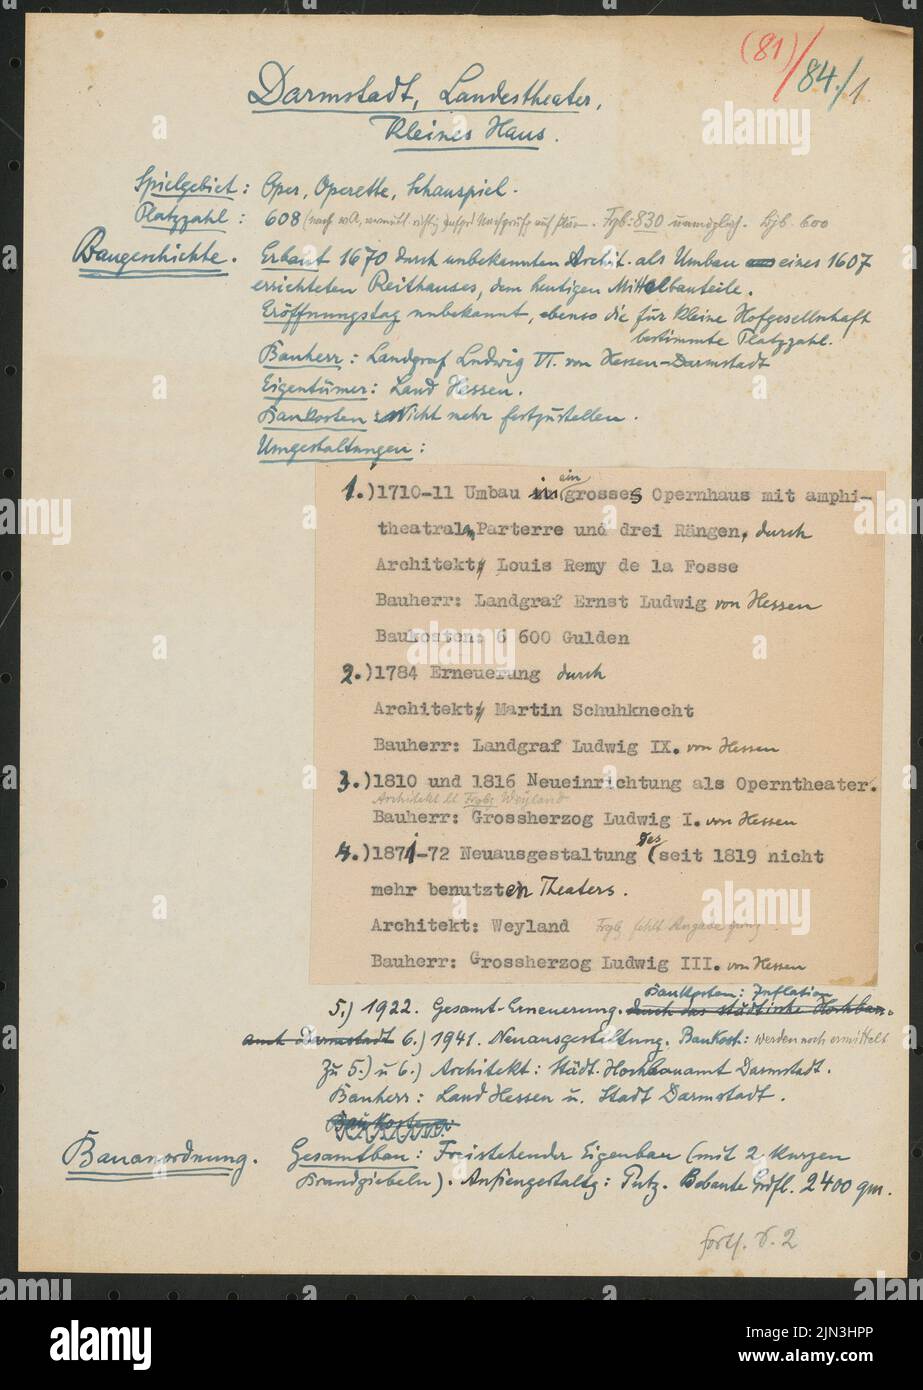 (81)/84./1
Darmstadt, Landestheater,
Kleines Haus.
Spielgebiet: Oper, Operette, Schauspiel.
Platzzahl: 608 (nach auf Plan. Fragb: 830 unmöglich. Bjb. 600
Baugeschichte. Erbaut 1670 durch unbekannten Archit. als Umbau eines 1607
errichteten Reithauses, dem heutigen Mittelbauteile.
Eröffnungstag unbekannt, ebenso die für kleine Hofgesellschaft
bestimmte Platzzahl.
Bauherr: Landgraf Ludwig VI. von Hessen-Darmstadt
Eigentümer: Land Hessen.
Baukosten: Nicht mehr festzustellen.
Umgestaltungen:
1.) 1710-11 Umbau in ein grosses Opernhaus mit amphi-
theatral. Parterre und drei Rängen, durch
Architekt Louis Remy de la Fosse
Bauherr: Landgraf Ernst Ludwig von Hessen
Baukosten: 6 600 Gulden
2.) 1784 Erneuerung durch
Architekt Martin Schuhknecht
Bauherr: Landgraf Ludwig IX. von Hessen
3.) 1810 und 1816 Neueinrichtung als Operntheater.
Architekt lt Frgb Weyland
Bauherr: Grossherzog Ludwig I. von Hessen
4.) 1871-72 Neuausgestaltung des (seit 1819 nicht
mehr benutzten Theaters.
Architekt: Weyland Frgb fehlt Angabe ganz
Bauherr: Grossherzog Ludwig III. von Hessen
Baukosten: Inflation
5.) 1922. Gesamt-Erneuerung. durch das städtische Hochbau-
amt Darmstadt 6.) 1941. Neuausgestaltung. Baukost: werden noch ermittelt
Zu 5.) u 6.) Architekt: Städt. Hochbauamt Darmstadt.
Bauherr: Land Hessen u. Stadt Darmstadt.
Baukosten:
Bauanordnung. Gesamtbau: Freistehender Eigenbau (mit 2 kurzen
Brandgiebeln). Außengestaltg: Putz. Bebaute Grdfl. 2400 qm.
forts. S. 2
alamy
Image ID: 2JN3HPP
www.alamy.com